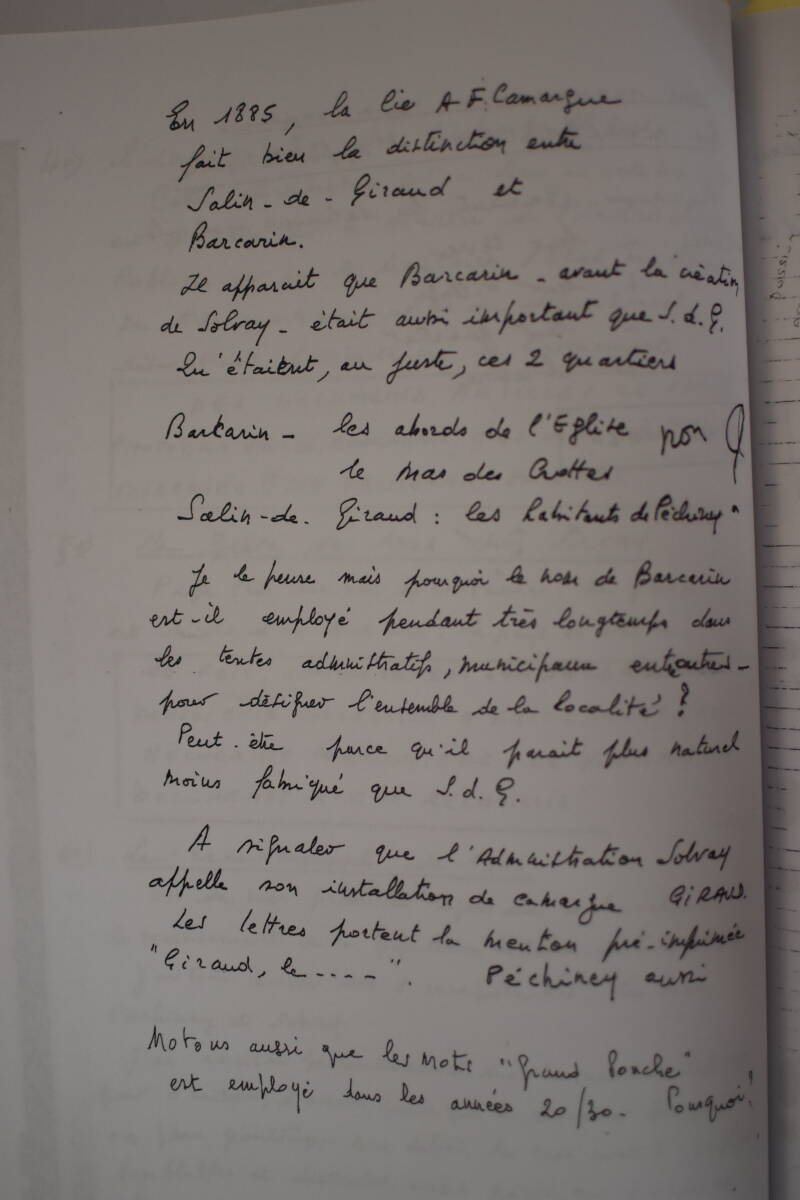 En 1885, la Cie A F. Camargue
fait bien la distinction entre
Salin-de-Giraud et
Barcarin.
Il apparait que Barcarin - avant la création
de Solvay - était aussi important que S.d.G.
Qu'étaient, au juste, ces 2 quartiers
Barkarin - les abords de l'Eglise non
le mas des Crottes
Salin-de-Giraud : les habitants de Péchiney"
Je le pense mais pourquoi le nom de Barcarin
est-il employé pendant très longtemps dans
les textes administratifs, municipaux entr'autres -
pour désigner l'ensemble de la localité ?
Peut-être parce qu'il parait plus naturel
moins fabriqué que S.d.G.
A signaler que l'Administration Solvay
appelle son installation de Camargue GIRAUD.
Les lettres portent la mention pré-imprimée
"Giraud, le ----". Péchiney aussi
Notons aussi que les mots "Grand Ponche"
est employé dans les années 20/30. Pourquoi!